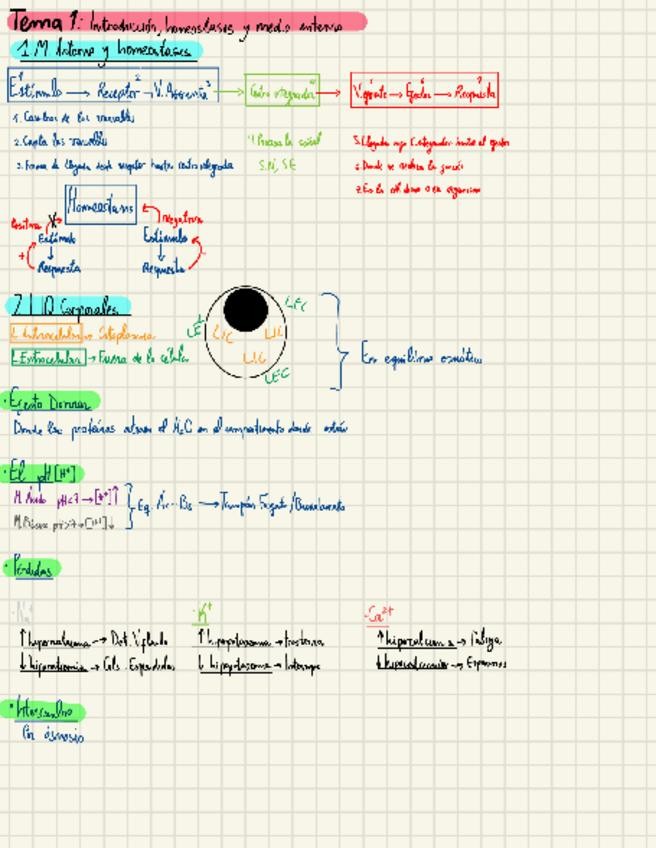 Tema 1: Introducción, homeostasis y medio interno
1. M. Interno y homeostasis
1 Estímulo → Receptor 2 → V. Aferente 3 → Centro integrador 4 → V. eferente → Efector → Respuesta 7
1. Cambios de las variables
2. Capta las variables
3. Forma de llegada desde receptor hasta centro integrador
4. Procesa la señal
S.N, S.E
5. Llegada
6. Donde se realiza la función
7. Es la
Homeostasis
Positiva
Negativa
Estímulo
Estímulo
+
-
Respuesta
Respuesta
2. LIQ Corporales
L. Intracelular → Citoplasma
L. Extracelular → Fuera de la célula
LEC
LEC
LIC
LIC
LIC
LEC
En equilibrio osmótico
· Efecto Donnan
Donde las proteínas atraen el H2O en el compartimento donde están
· El pH [H+]
M. Ácido pH<7 → [H+]↑
M. Básico pH>7 → [H+]↓
Eq. Ác-Bs → Tampón Sangre/Bicarbonato
· Pérdidas
· Na+
· K+
· Ca2+
↑ hipernatremia →
↓ hiponatremia → Cels. Expandidas
↑ hiperpotasemia →
↓ hipopotasemia →
↑ hipercalcemia → Fatiga
↓ hipocalcemia → Espasmos
· Intercambio
Por ósmosis